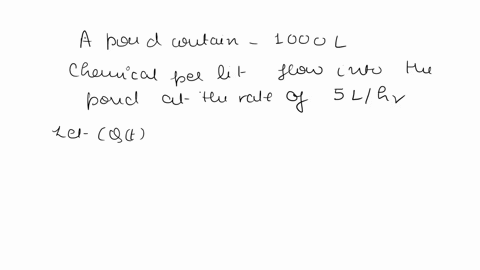 A pond contain - 1000L
Chemical per lit flow into the
pond at the rate of 5L/hr
Let (Q(t)